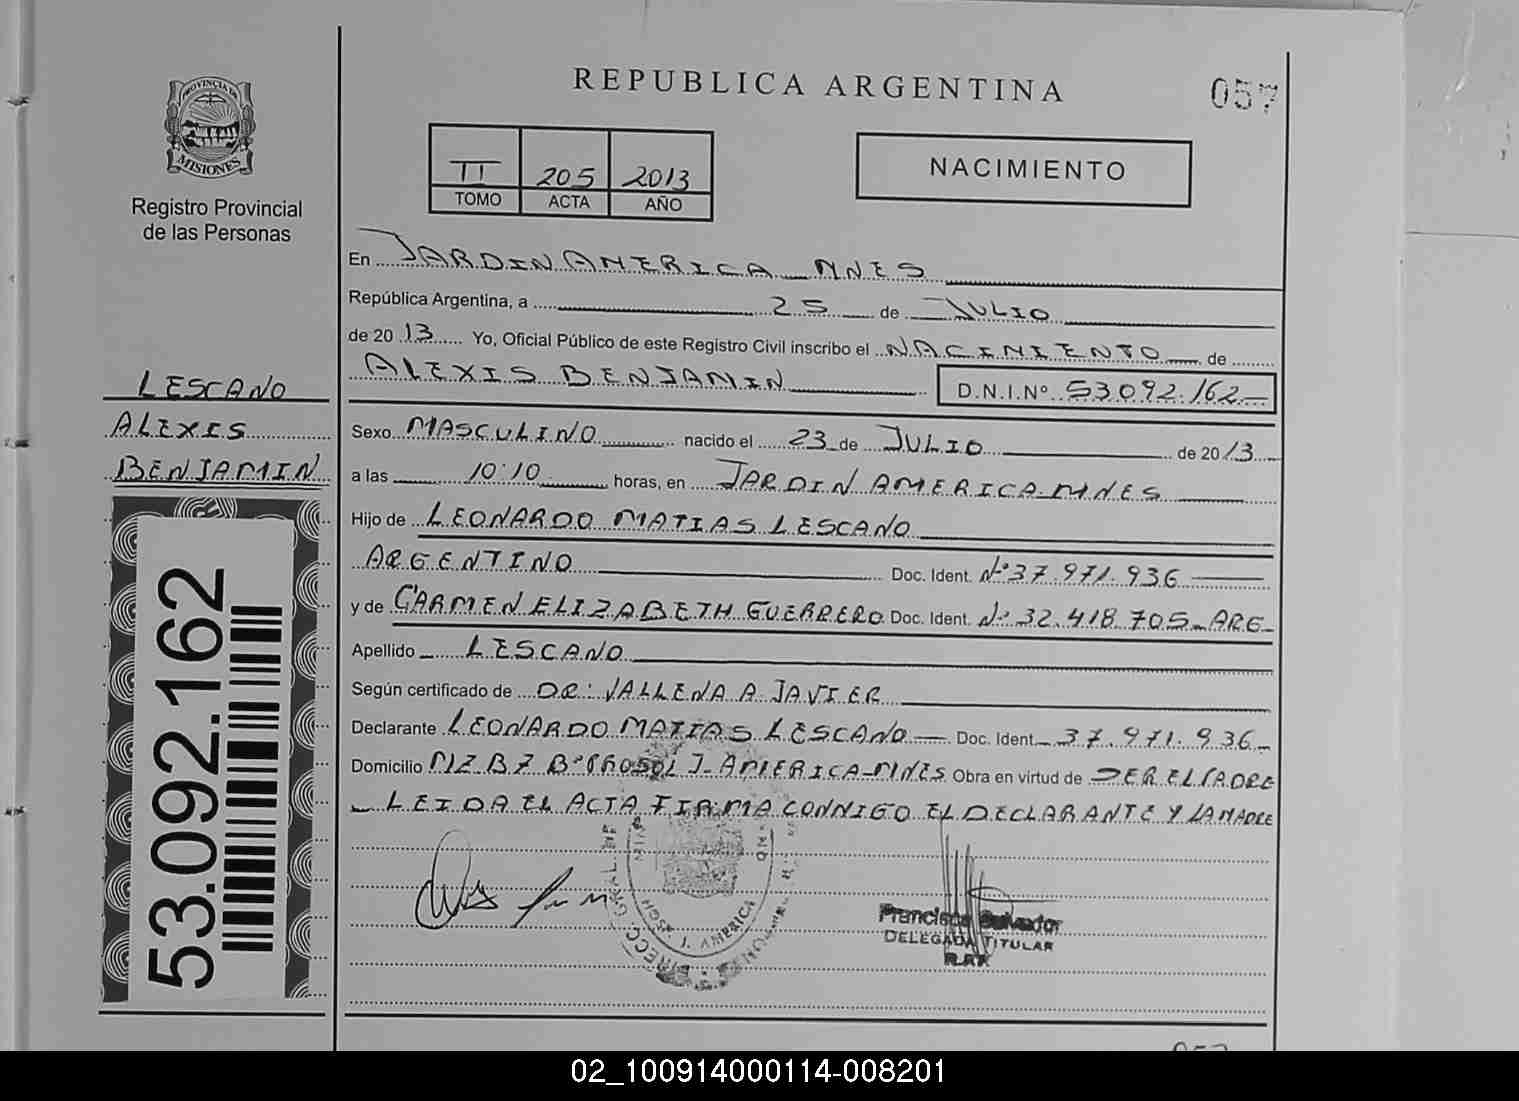 REPUBLICA ARGENTINA
057
PROVINCIA DE
MISIONES
Registro Provincial
de las Personas
II 205 2013
TOMO ACTA AÑO
NACIMIENTO
En JARDIN AMERICA MNES
República Argentina, a 25 de JULIO
de 20 13 Yo, Oficial Público de este Registro Civil inscribo el NACIMIENTO de
ALEXIS BENJAMIN D.N.I.Nº 53.092.162
LESCANO
ALEXIS
BENJAMIN
Sexo MASCULINO nacido el 23 de JULIO de 20 13
a las 10:10 horas, en JARDIN AMERICA MNES
Hijo de LEONARDO MATIAS LESCANO
ARGENTINO Doc. Ident. Nº 37.971.936
y de CARMEN ELIZABETH GUERRERO Doc. Ident. Nº 32.418.705 ARG
Apellido LESCANO
Según certificado de DR: VALLENA A JAVIER
Declarante LEONARDO MATIAS LESCANO Doc. Ident. 37.971.936
Domicilio MZ B7 J. AMERICA-MNES Obra en virtud de SER EL PADRE
LEIDA EL ACTA FIRMA CONMIGO EL DECLARANTE Y LA MADRE
53.092.162
J. AMERICA
Francisca Salvador
DELEGADA TITULAR
02_100914000114-008201